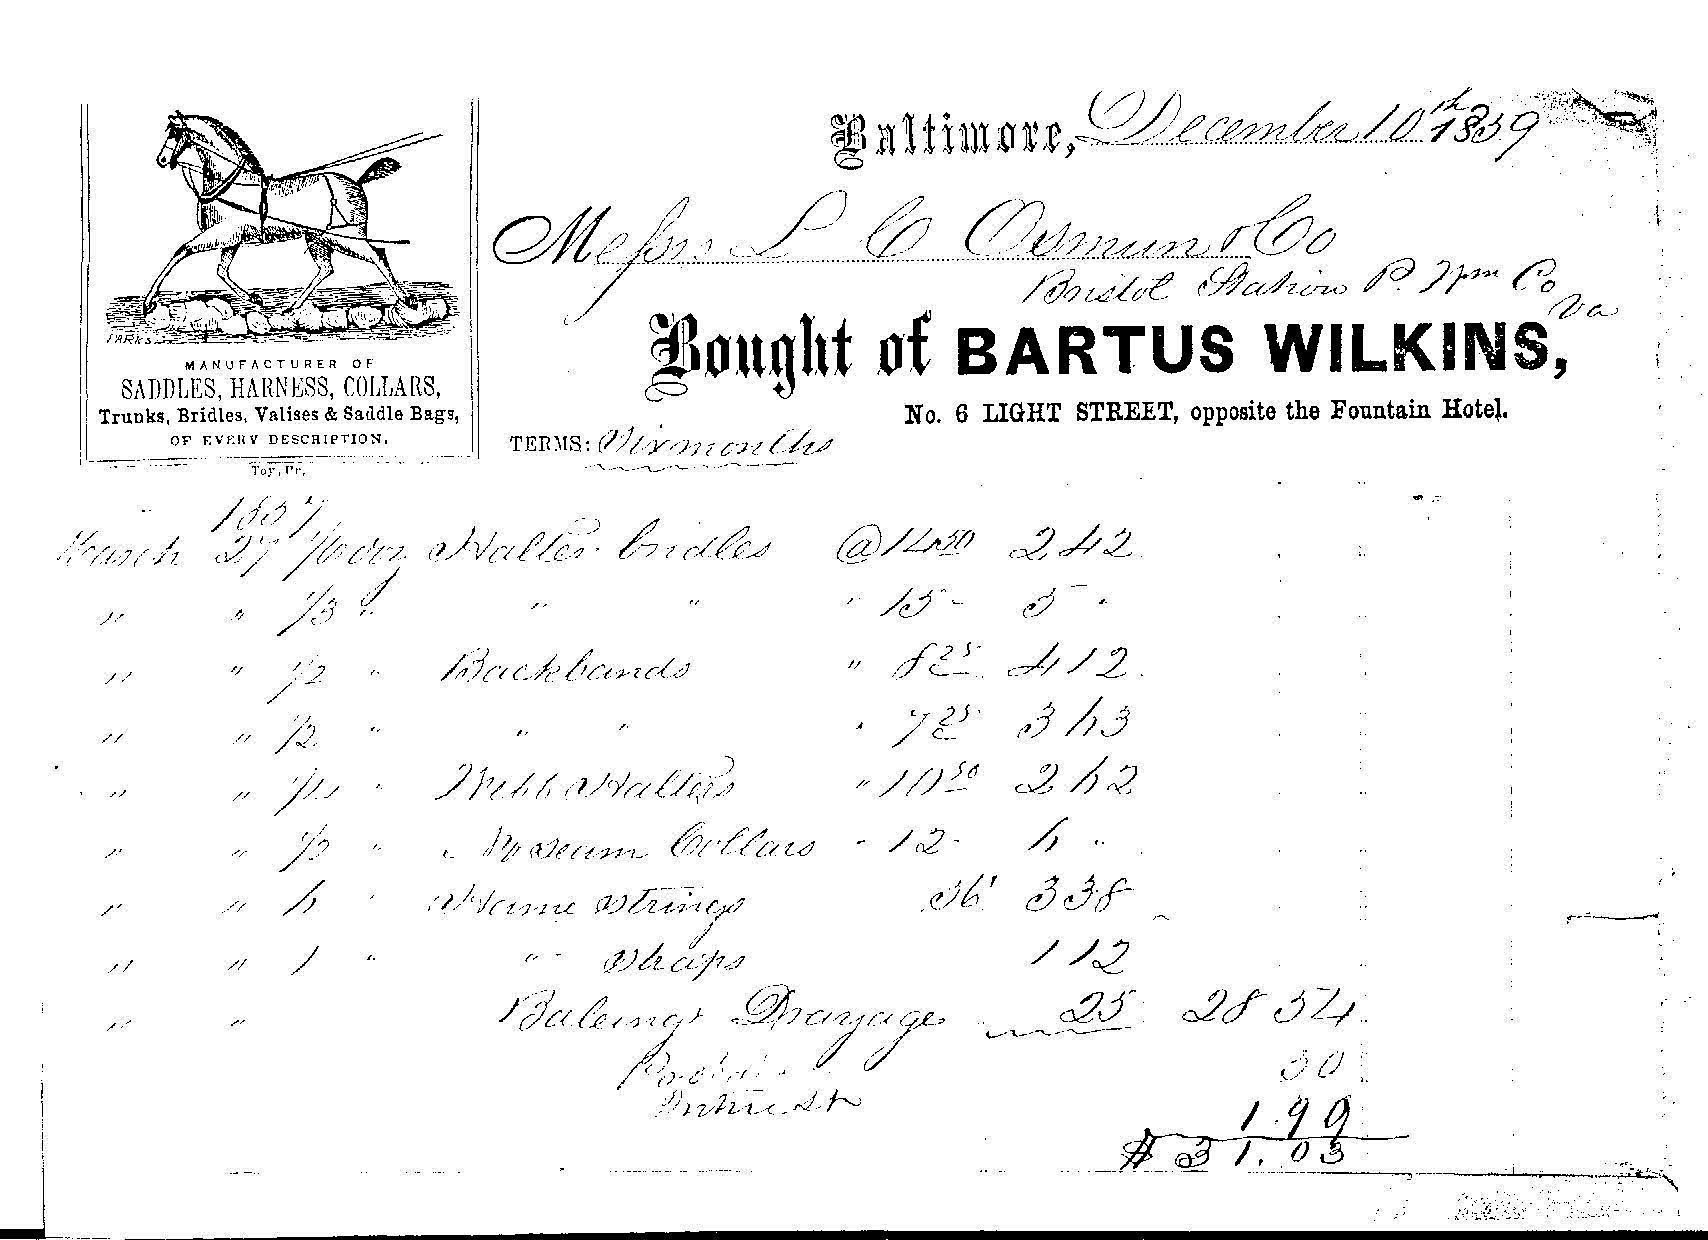 Baltimore, December 10th 1859
Messrs L C Osmun & Co
Bristol Station P. Wm Co
Va
Bought of BARTUS WILKINS,
No. 6 LIGHT STREET, opposite the Fountain Hotel.
PARKS
MANUFACTURER OF
SADDLES, HARNESS, COLLARS,
Trunks, Bridles, Valises & Saddle Bags,
OF EVERY DESCRIPTION.
Toy, Pr.
TERMS: Six months
1857
March 27 1/6 doz Halter bridles @ 14 50 2 42
" " 1/3 " " " " 15 - 5 "
" " 1/2 " Backbands " 8 25 4 12
" " 1/2 " " " " 7 25 3 63
" " 1/4 " Webb Halters " 10 50 2 62
" " 1/2 " " seam Collars " 12 - 6 "
" " 6 " Hame Strings 56 3 38
" " 1 " " Straps 1 12
" " Baleing & Drayage 25 28 54
50
Interest 1.99
$ 31.03